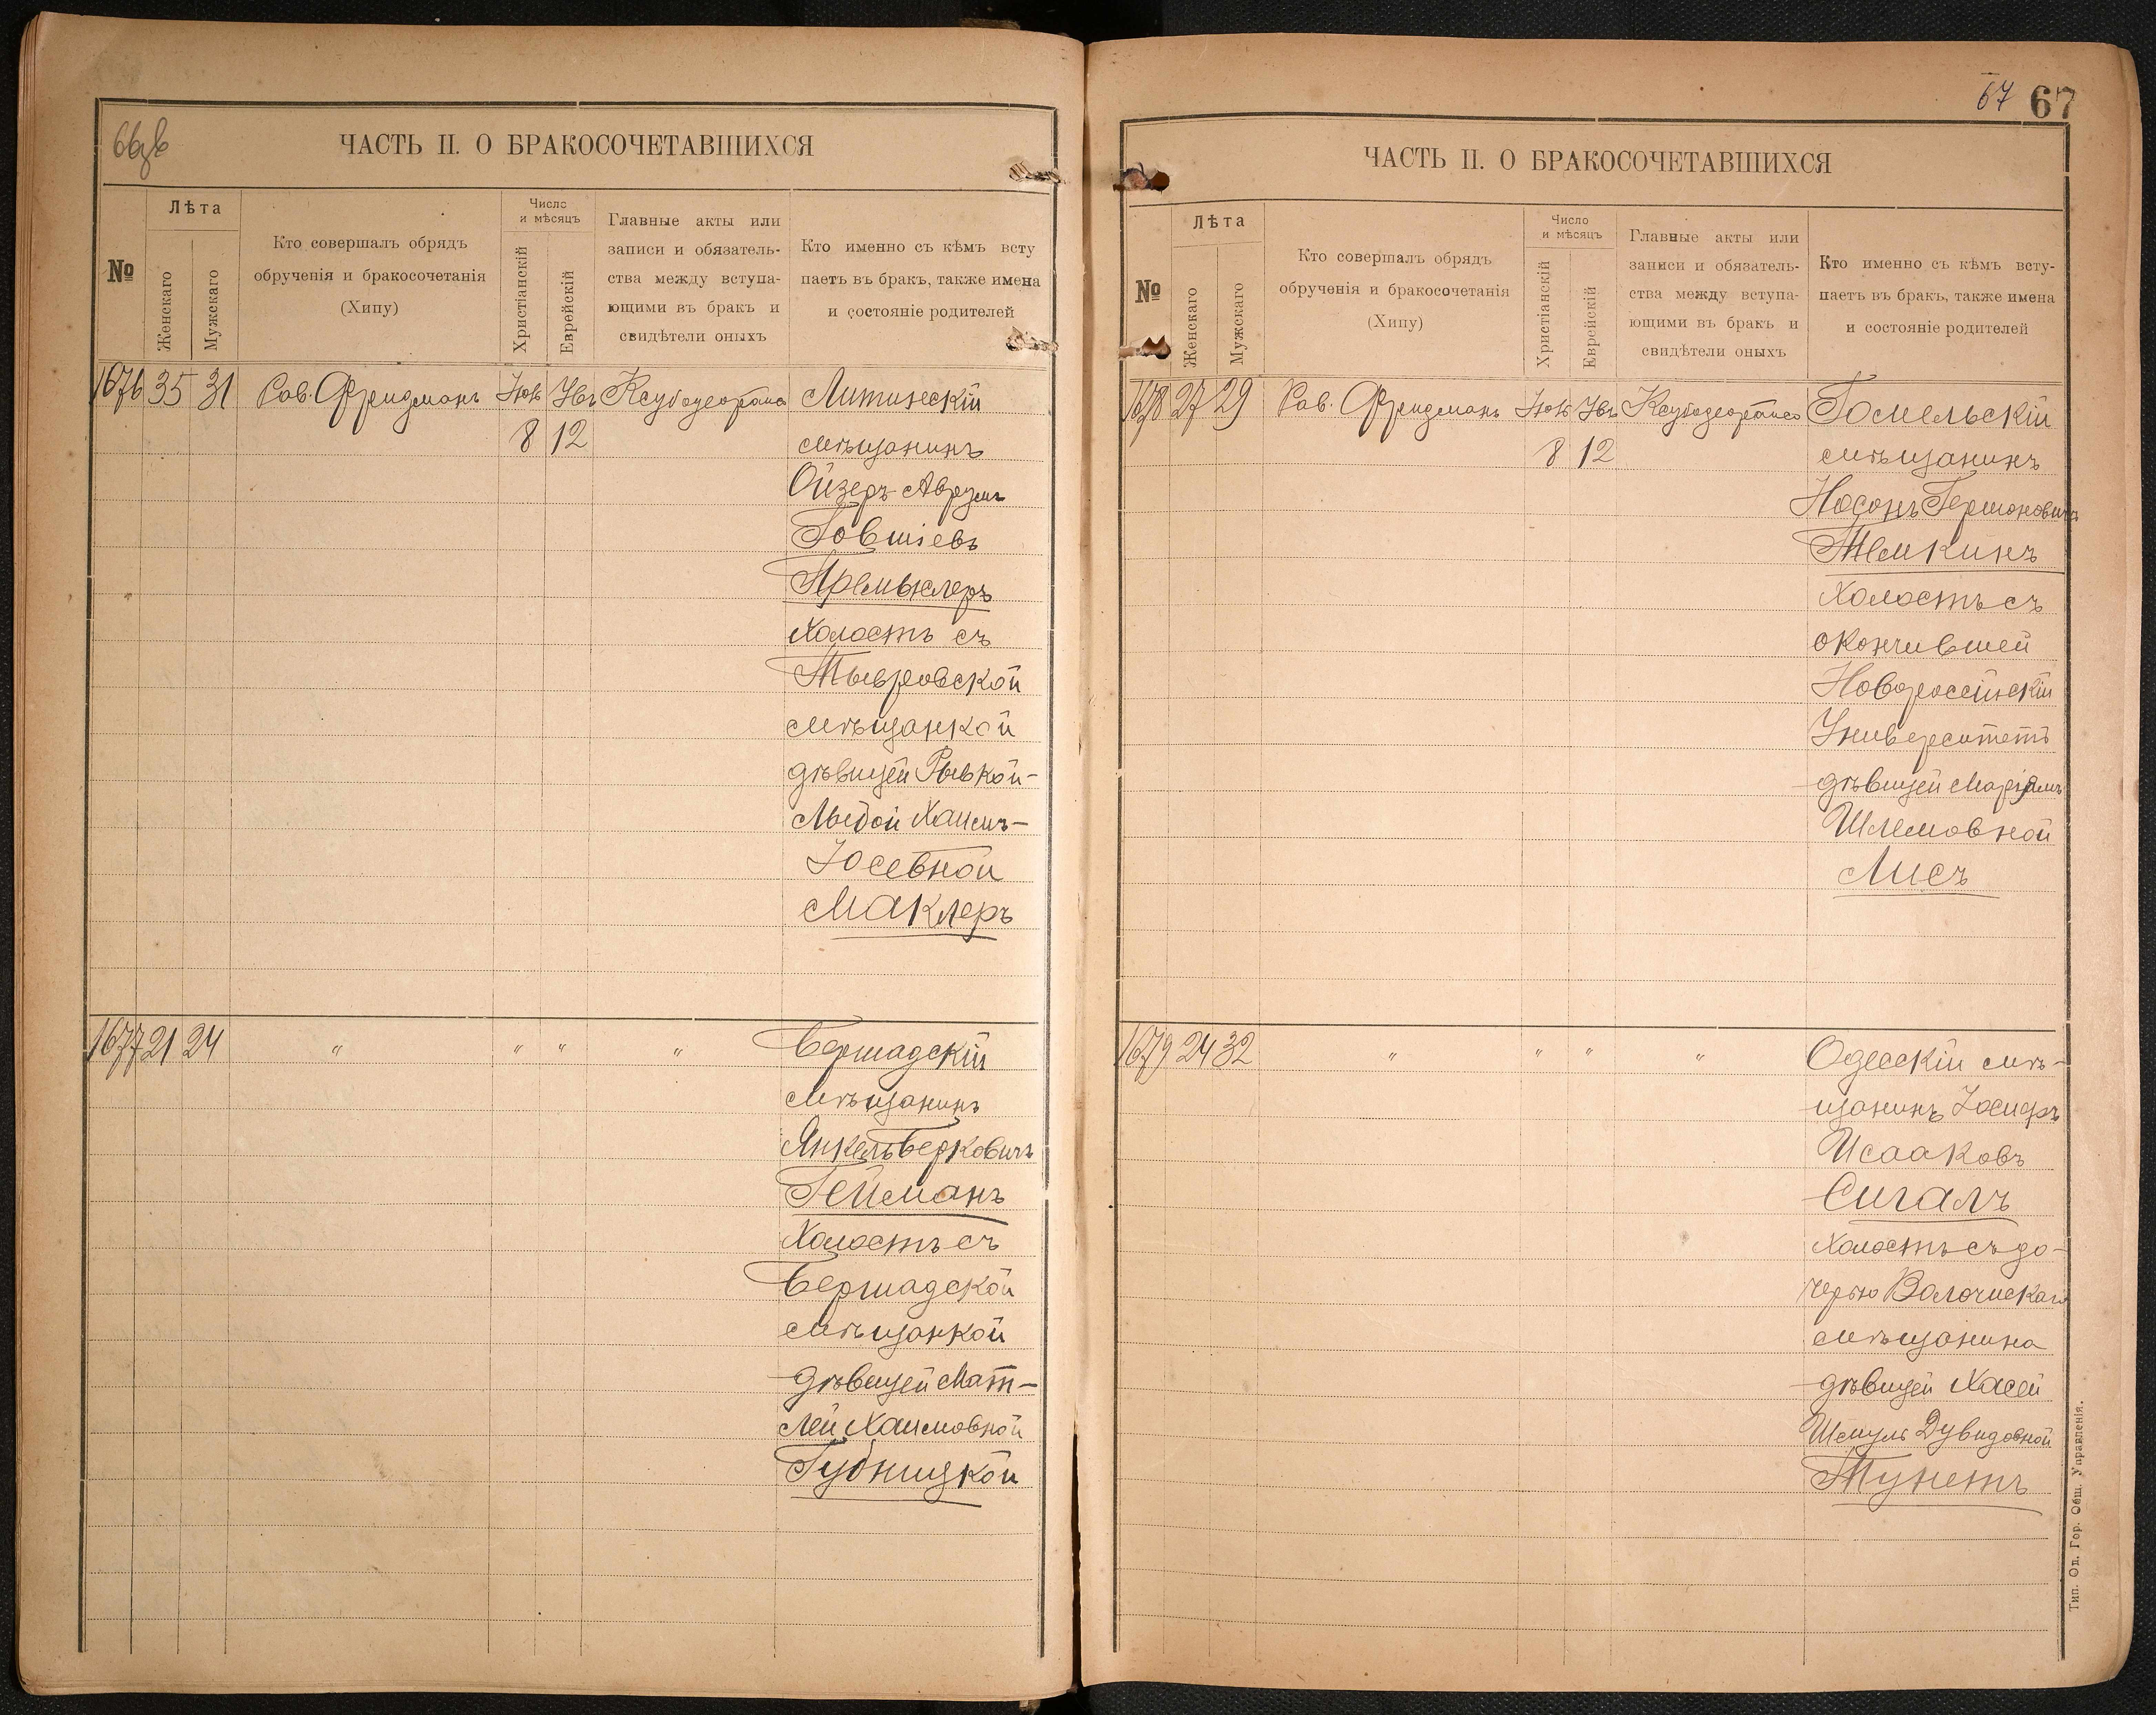 66об
ЧАСТЬ II. О БРАКОСОЧЕТАВШИХСЯ
№
Лѣта
Женскаго
Мужскаго
Кто совершалъ обрядъ
обрученія и бракосочетанія
(Хипу)
Число
и мѣсяцъ
Христіанскій
Еврейскій
Главные акты или
записи и обязатель-
ства между вступа-
ющими въ бракъ и
свидѣтели оныхъ
Кто именно съ кѣмъ всту
паетъ въ бракъ, также имена
и состояніе родителей
1676 35 31 Рав. Фридманъ Литинскій
8 12 мѣщанинъ
Ойзеръ-Аврумъ
Іовшіевъ
Премыслеръ
холостъ съ
Тывровской
мѣщанкой
дѣвицей Рывкой-
Лыбой Хаимъ-
Іосевной
Маклеръ
1677 21 24 " " " " Бершадскій
мѣщанинъ
Янкель Берковичъ
Гейманъ
холостъ съ
Бершадской
мѣщанкой
дѣвицей Мат-
лей Хаимовной
Губницкой
67 67
ЧАСТЬ II. О БРАКОСОЧЕТАВШИХСЯ
№
Лѣта
Женскаго
Мужскаго
Кто совершалъ обрядъ
обрученія и бракосочетанія
(Хипу)
Число
и мѣсяцъ
Христіанскій
Еврейскій
Главные акты или
записи и обязатель-
ства между вступа-
ющими въ бракъ и
свидѣтели оныхъ
Кто именно съ кѣмъ всту-
паетъ въ бракъ, также имена
и состояніе родителей
1678 27 29 Рав. Фридманъ Гомельскій
8 12 мѣщанинъ
Носонъ Гершоновичъ
Темкинъ
холостъ съ
окончившей
Новороссійскій
Университетъ
дѣвицей Маріямъ
Шлемовной
Лисъ
1679 24 32 " " " " Одесскій мѣ-
щанинъ Іосифъ
Исааковъ
Сигалъ
холостъ съ до-
черью Волочискаго
мѣщанина
дѣвицей Хасей
Шмуль Дувидовной
Тунетъ
Тип. Од. Гор. Общ. Управленія.